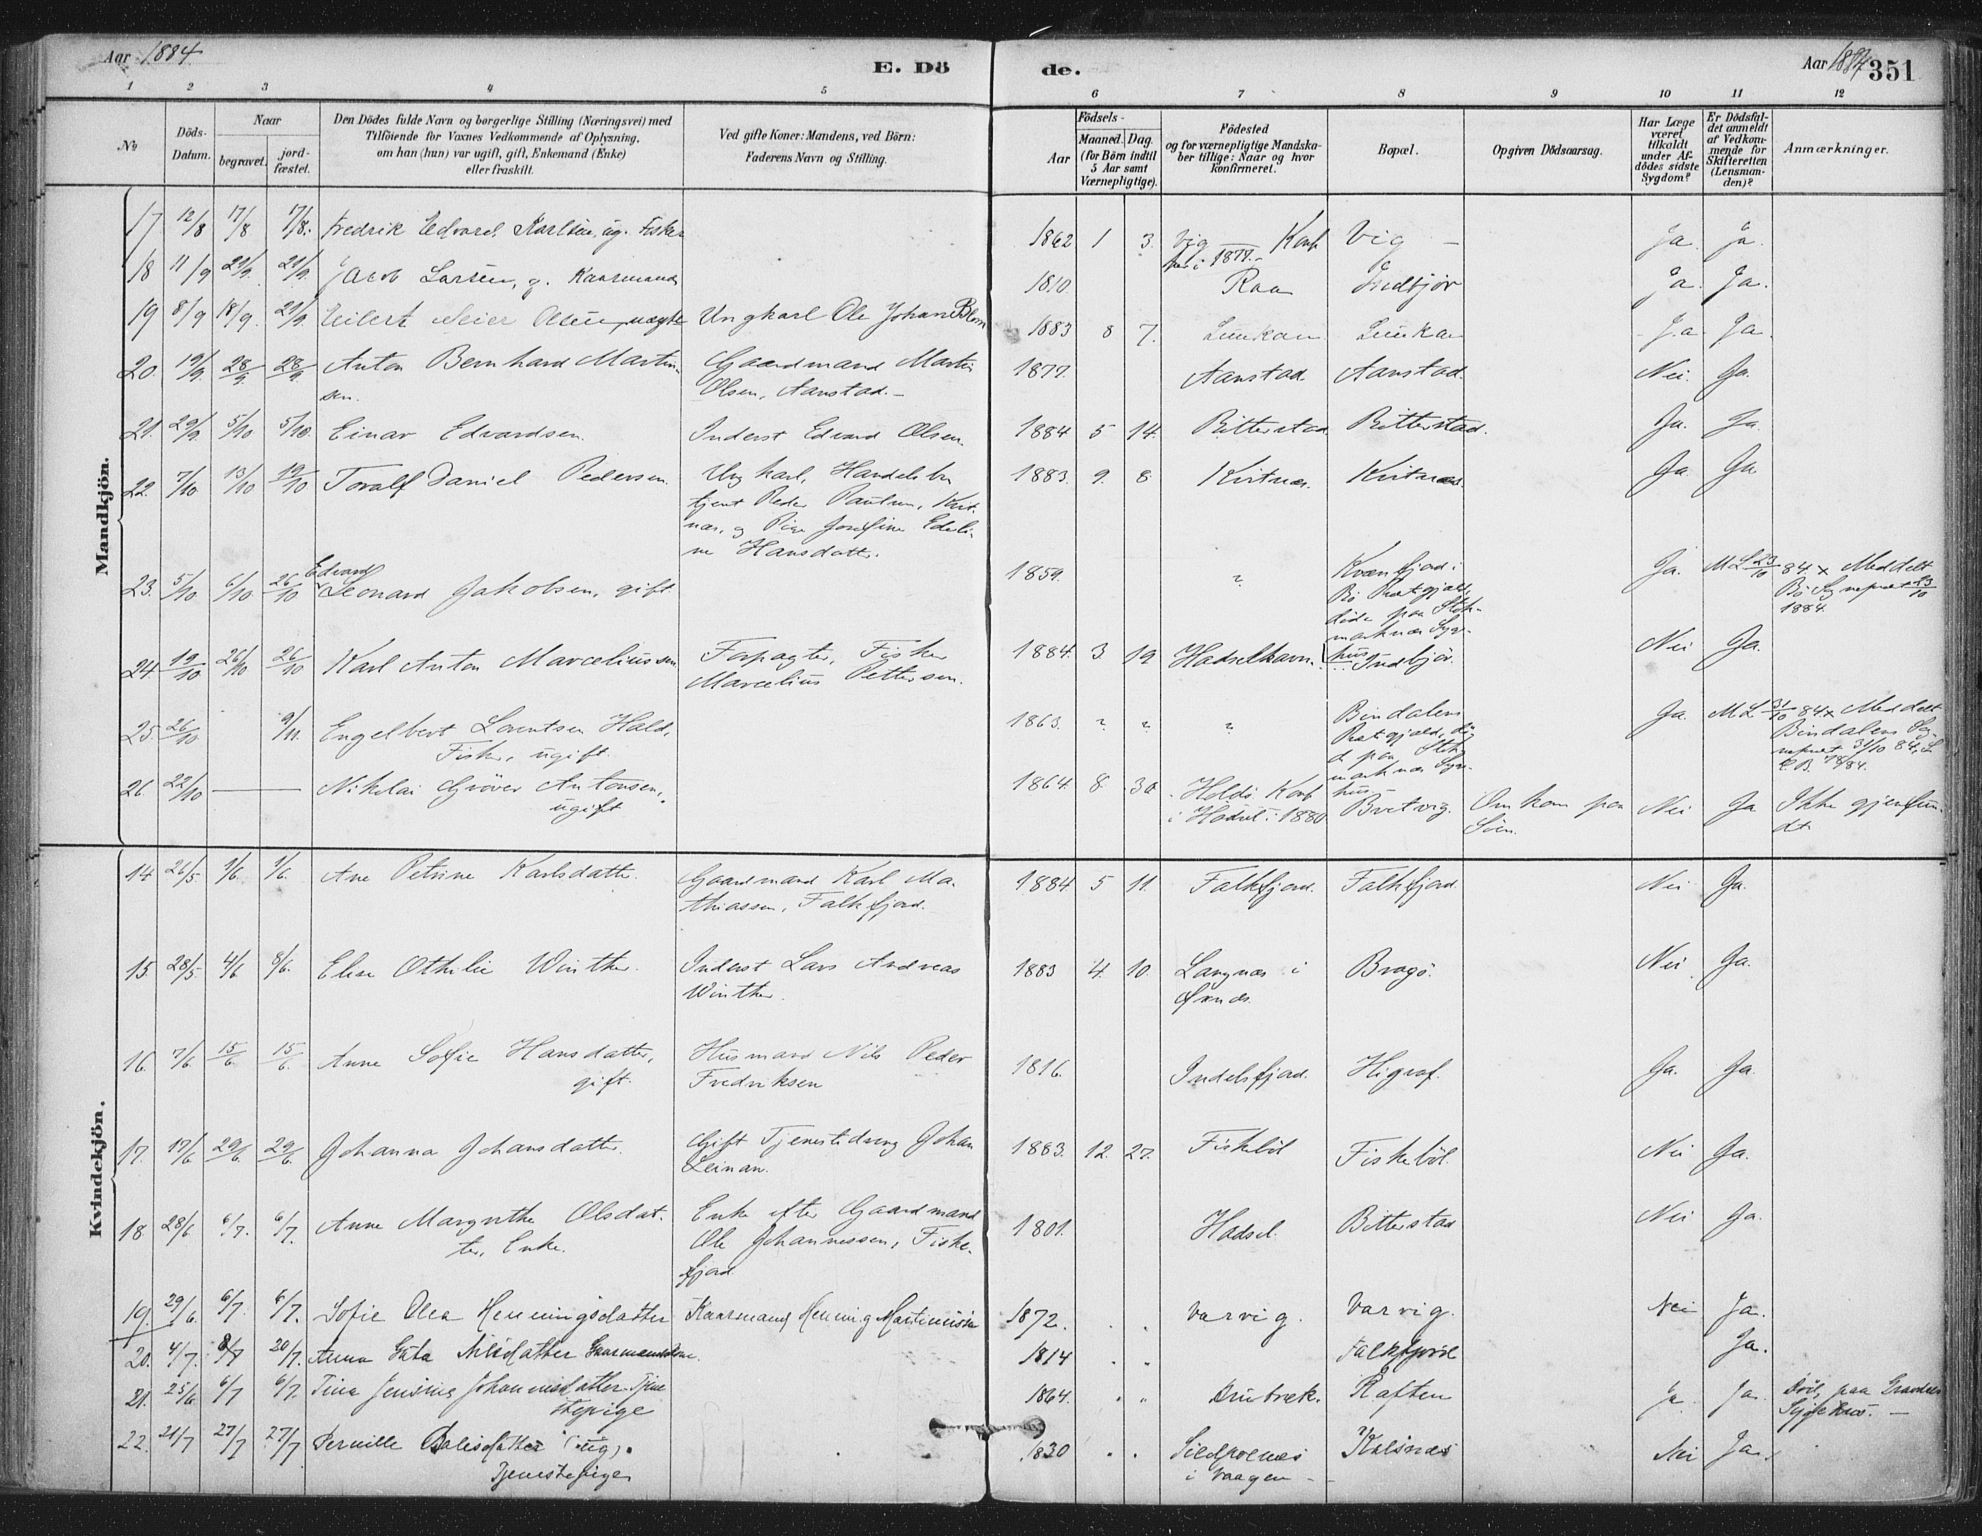 Aar 1884. E. Dö
de. Aar 1884 351
1 2 3 4 5 6 7 8 9 10 11 12
No
Döds-Datum.
Naar
begravet.
jord-fæstet.
Den Dödes fulde Navn og borgerlige Stilling (Næringsvei) med
Tilföiende for Voxnes Vedkommende af Oplysning,
om han (hun) var ugift, gift, Enkemand (Enke)
eller fraskilt.
Ved gifte Koner: Mandens, ved Börn:
Faderens Navn og Stilling.
Födsels-
Aar
Maaned. Dag.
(for Börn indtil
5 Aar samt
Værnepligtige).
Födested
og for værnepligtige Mandska-
ber tillige: Naar og hvor
konfirmeret.
Bopæl.
Opgiven Dödsaarsag.
Har Læge
været
tilkaldt
under Af-
dödes sidste
Sygdom?
Er Dödsfal-
det anmeldt
af Vedkom-
mende for
Skifteretten
(Lensman-
den)?
Anmærkninger.
Mandkjön.
17 12/8 17/8 17/8. Fredrik Edvard Karlsen, ug. Fisker 1862 1 3. Vig Konf. Vig — Ja. Ja.
i 1877.
18 11/9 21/9. 21/9. Jacob Larsen, g. Kaarmand 1810. Raa Indbjör Ja. Ja.
19 8/9 18/9. 21/9. Eilert Meier Olsen, uægte Ungkarl Ole Johan Blom 1883 8 7. Lunkan Lunkan Ja Ja.
20. 19/9. 28/9 28/9 Anton Bernhard Martin- Gaardmand Martin 1877. Aanstad. Aanstad. Nei. Ja.
sen. Olsen, Aanstad.—
21. 29/9. 5/10 5/10. Einar Edvardsen. Inderst Edvard Olsen. 1884 5 14. Bitterstad Bitterstad. Ja. Ja.
22. 7/10. 13/10 19/10 Toralf Daniel Pedersen. Ungkarl, Handelsbe- 1883. 9. 8. Kvitnes. Kvitnæs. Ja Ja
tjent Peder Paulsen, Kvit-
næs, og Pige Josefine Edeli-
ne Hansdatter.
23. 5/10 6/10 26/10 Edvard Leonard Jakobsen, gift. 1859. ? Kvænfjord i Ja. ML 23/10 84. x Meddelt
Bö Præstgjæld, Bö Sognepræst 23/10
døde paa Stok- 1884.
marknæs Syge-
hus
24. 19/10 26/10 26/10 Karl Anton Marceliussen Forpagter, Fisker 1884. 3. 19. Hadselhavn. Indbjör. Nei Ja.
Marcelius Pettersen.
25. 26/10 9/11. Engelbert Lorentsen Hald, 1863. ? ? ? Bindalens Ja. ML 31/10 84 x Meddelt
Fisker, ugift. Præstgjæld, dö- Bindalens Sog-
d paa Stok- nepræst 31/10 84.
marknæs Syge-
hus
26. 22/10 — Nikolai Gröver Antonsen, 1864. 8. 30. Holdö. Konf. Bretvig. Omkom paa Nei Ja Ikke gjenfun-
ugift i Hadsel i 1880 Söen. dt.
Kvindekjön.
14 26/5. 1/6. 1/6. Ane Petrine Karlsdatter. Gaardmand Karl Ma- 1884 5 11. Falkfjord. Falkfjord. Nei Ja.
thiassen, Falkfjord.
15 28/5. 4/6 8/6. Elise Othilie Winther. Inderst Lars Andreas 1883 4. 10. Langnæs i Bragö. Nei Ja.
Winther. Öxnæs.
16. 7/6. 15/6. 15/6. Anne Sofie Hansdatter, Husmand Nils Peder 1816. Indelsfjord. Higraf. Ja. Ja.
gift. Fredriksen
17. 17/6 29/6. 29/6. Johanna Johansdatter. Gift Tjenestedreng Johan 1883. 12. 27. Fiskeböl Fiskeböl. Nei Ja.
Leinan.
18 28/6 6/7. 6/7. Anne Margrethe Olsdat- Enke efter Gaardmand 1801. Hadsel. Bitterstad Nei Ja.
ter, Enke. Ole Johannessen, Fiske-
fjord.
19. 29/6. 6/7. 6/7. Sofie Olea Henningsdatter Kaarmand Henning Martinussen 1872. Varvig. Varvig. Nei Ja.
20. 4/7. 8/7 20/7. Anna Nilsdatter 1814 Falkfjord Ja.
21. 25/6. 6/7 6/7. Tina Jensine Johannesdatter Tjene- 1864. Raften Ja. Ja. Död paa
stepige Sygehus. —
22. 21/7 27/7 27/7 Pernille (ug). 1830 Sildpolnes Kalsnæs Nei Ja.
Tjenestepige i Vaagen —